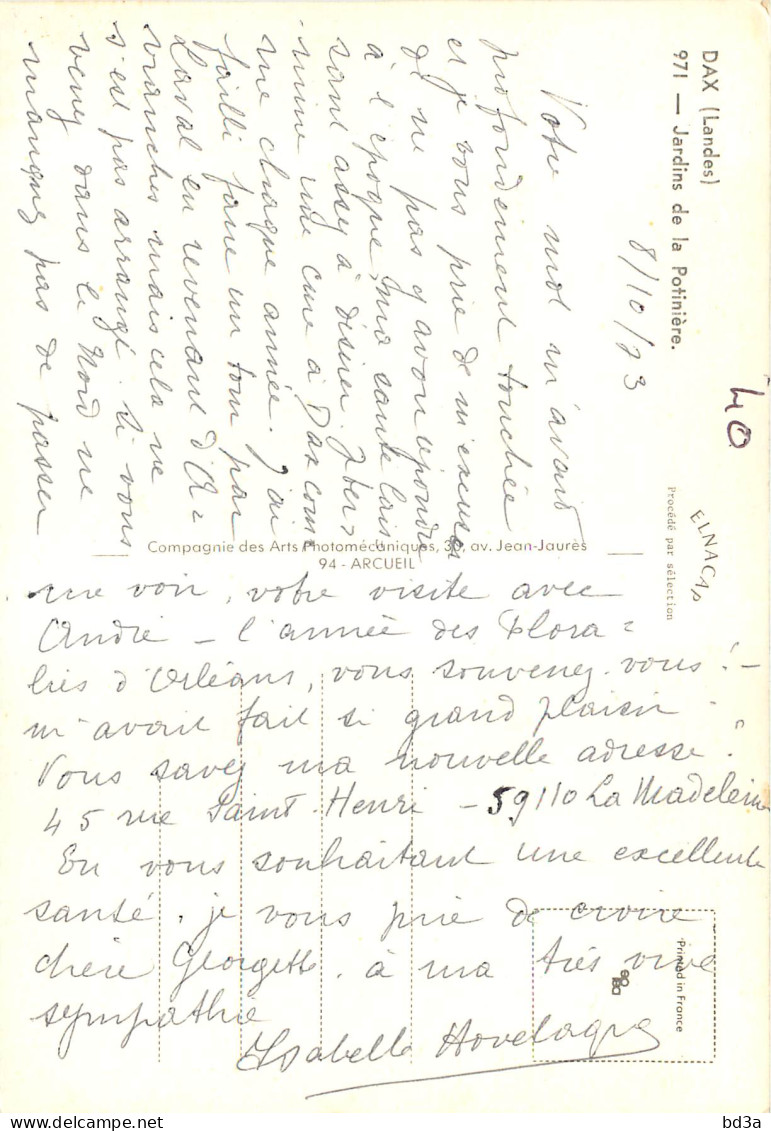 DAX (Landes)
971 — Jardins de la Potinière.
8/10/73
40
Procédé par sélection
Votre mot m'avait
profondément touchée
et je vous prie de m'excuser
de ne pas y avoir répondu
à l'époque, ma santé lais
sant assez à désirer. J'ter
mine une cure à Dax com
me chaque année. J'ai
failli faire un tour par
Laval en revenant d'A=
vranches mais cela ne
s'est pas arrangé. Si vous
venez dans le Nord ne
manquez pas de passer
Compagnie des Arts Photomécaniques, 3 , av. Jean-Jaurès
94 - ARCUEIL
me voir, votre visite avec
André - l'année des Flora=
lies d'Orléans, vous souvenez-vous? -
m'avait fait si grand plaisir.
Vous savez ma nouvelle adresse?
45 rue Saint-Henri - 59110 La Madeleine
En vous souhaitant une excellente
santé, je vous prie de croire
chère Georgette, à ma très vive
sympathie
Isabelle
Printed in France